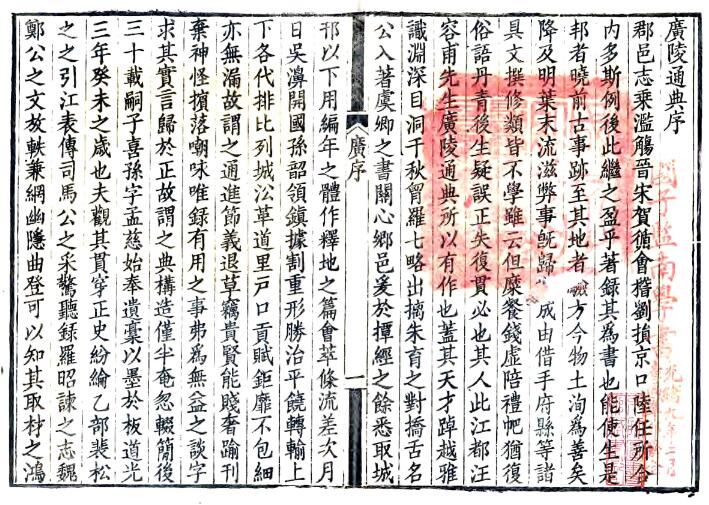 廣陵通典序
郡邑志乘濫觴晉宋賀循會稽劉損京口陸任所合
内多斯例後此繼之盈乎著錄其為書也能使生是
邦者曉前古事跡至其地者暾方今物土洵為善矣
降及明葉末流滋弊事旣歸成由借手府縣等諸
具文撰修類皆不學雖云但糜餐錢虛陪禮帊猶復
俗語丹青後生疑誤正失復貫必也其人此江都汪
容甫先生廣陵通典所以有作也蓋其天才踔越雅
識淵深目洞千秋胷羅七略出摛朱育之對撟舌名
公入著虞卿之書關心鄉邑爰於擅經之餘悉取城
邗以下用編年之體作釋地之篇會萃條流差次月
日吳濞開國孫韶領鎭據割重形勝治平饒轉輸上
下各代排比列城㳂革道里戸口貢賦鉅靡不包細
亦無漏故謂之通進節義退草竊貴賢能賤奢踰刊
棄神怪擯落嘲咏唯録有用之事弗為無益之談字
求其實言歸於正故謂之典構造僅半奄忽輟簡後
三十載嗣子喜孫字孟慈始奉遺稾以墨於板道光
三年癸未之歲也夫觀其貫穿正史紛綸乙部裴松
之之引江表傳司馬公之采驚聽録羅昭諫之志魏
鄭公之文放軼兼網幽隱曲登可以知其取材之鴻
廣序
一
國子監南學書
光緒九年二月